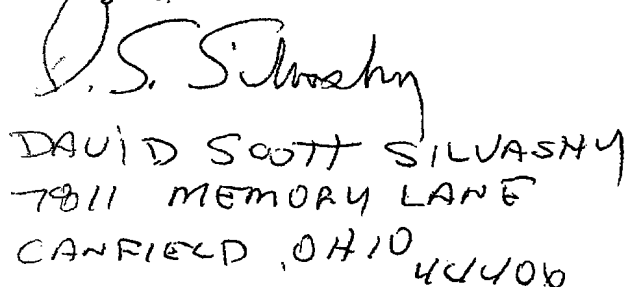 D. S. Silvashy
DAVID SCOTT SILVASHY
7811 MEMORY LANE
CANFIELD, OHIO 44406